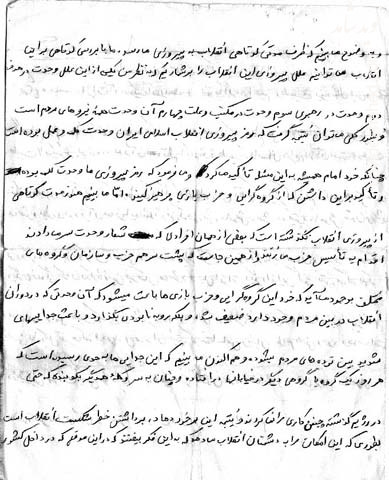 و به وضوح ما بینیم که ظرف مدتی کوتاهی انقلاب به پیروزی ما رسد. ما با بررسی کوتاهی بر این
انقلاب ما توانیم علل پیروزی این انقلاب را بر شماریم که به نظر من یکی از این علل وحدت در هدف
دوم وحدت در رهبری سوم وحدت در مکتب و علت چهارم آن وحدت همه نیروهای مردم است
و بطور کلی می توان نتیجه گرفت که رمز پیروزی انقلاب اسلامی ایران وحدت بوده است
چنانکه خود امام همیشه به این مسئله تأکید می کرد و ما فرمود که رمز پیروزی ما وحدت کلمه بوده
و تأکید بر این داشتن که از گروه گرایی و حزب بازی پرهیز کنیم. اما ما بینیم هنوز مدت کوتاهی
از پیروزی انقلاب نگذشته است که بعضی از همان افرادی که شعار وحدت سر می دادند
اقدام به تأسیس حزب ما زنند از همین جاست که پشت سر هم حزب و سازمان و گروه های
مختلف بوجود ما آید که خود این گروه گرایی و حزب بازی ها باعث میشود که آن وحدتی که در دوران
انقلاب در بین مردم وجود دارد ضعیف شده و بلکه رو به نابودی بگذارد و باعث جدایی های
شدید بین توده های مردم میشود و هم اکنون ما بینیم که این جدایی ها به حدی رسیده است که
هر روز یک گروه با گروهی دیگر در خیابانها براه افتاده و چنان به سر و کله همدیگر بکوبند که حتی
در رژیم گذشته چنین کاری را نمی کردند و نتیجه این بوجود ما آید، برداشتن خطر شکست انقلاب است
بطوری که این امکان را به دشمنان انقلاب ما دهد که به این فکر بیفتند که در این موقع که در داخل کشور